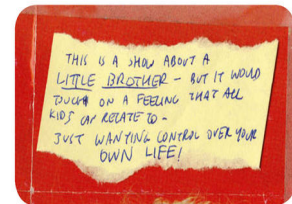 THIS IS A SHOW ABOUT A
LITTLE BROTHER - BUT IT WOULD
TOUCH ON A FEELING THAT ALL
KIDS CAN RELATE TO -
JUST WANTING CONTROL OVER YOUR
OWN LIFE!